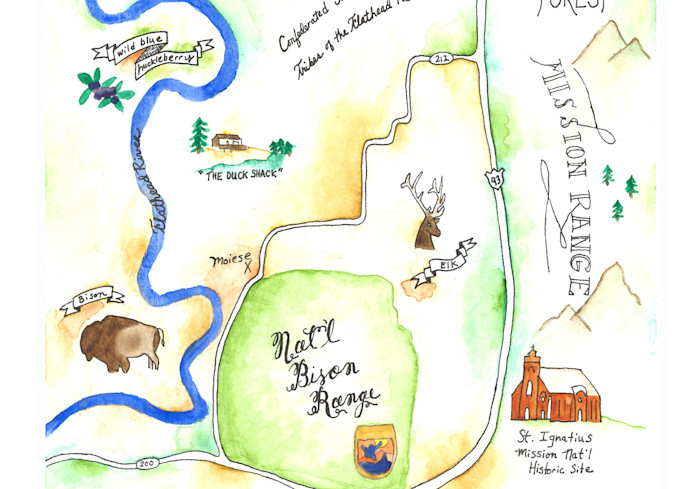 FOREST
Confederated
Tribes of the Flathead
wild blue
huckleberry
212
MISSION RANGE
"THE DUCK SHACK"
93
Flathead River
Moiese
X
Elk
Bison
Nat'l
Bison
Range
St. Ignatius
Mission Nat'l
Historic Site
200